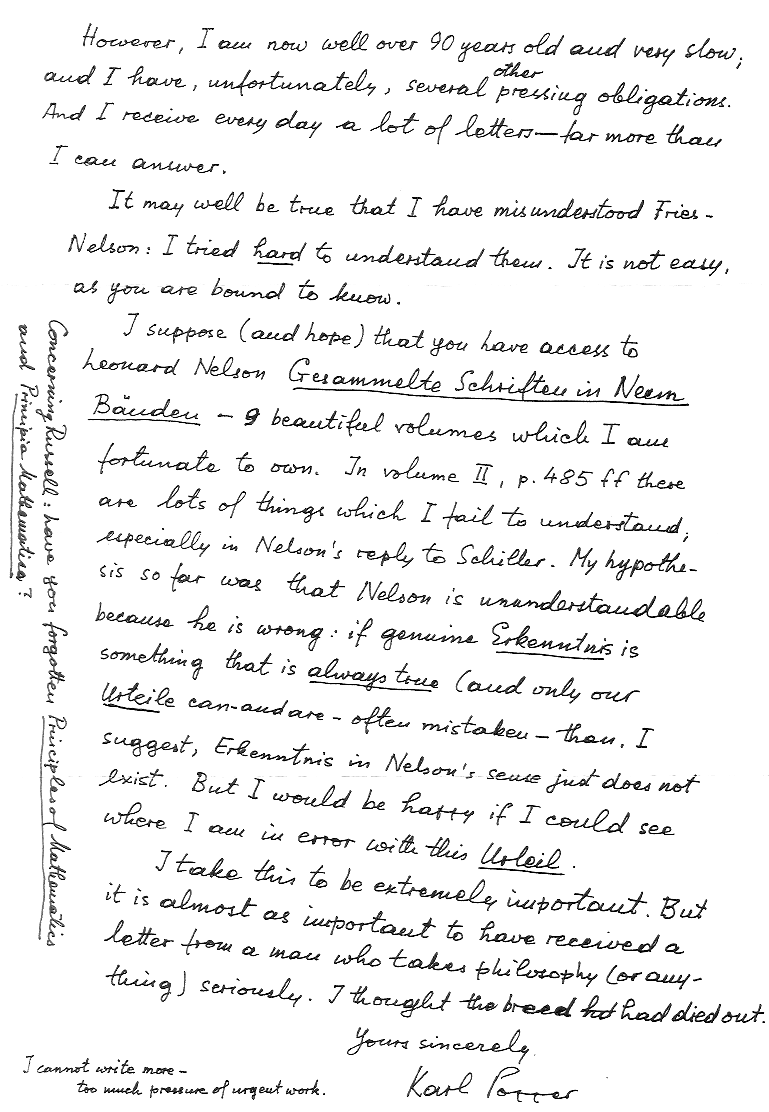 However, I am now well over 90 years old and very slow;
other
and I have, unfortunately, several pressing obligations.
And I receive every day a lot of letters—far more than
I can answer.
It may well be true that I have misunderstood Fries-
Nelson: I tried hard to understand them. It is not easy,
as you are bound to know.
I suppose (and hope) that you have access to
Leonard Nelson Gesammelte Schriften in Neun
Bänden – 9 beautiful volumes which I am
fortunate to own. In volume II, p. 485 ff there
are lots of things which I fail to understand;
especially in Nelson's reply to Schiller. My hypothe-
sis so far was that Nelson is ununderstandable
because he is wrong: if genuine Erkenntnis is
something that is always true (and only our
Urteile can-and are-often mistaken – than, I
suggest, Erkenntnis in Nelson's sense just does not
exist. But I would be happy if I could see
where I am in error with this Urteil.
I take this to be extremely important. But
it is almost as important to have received a
letter from a man who takes philosophy (or any-
thing) seriously. I thought the breed had died out.
Yours sincerely
Karl Popper
I cannot write more –
too much pressure of urgent work.
Concerning Russell: have you forgotten Principles of Mathematics
and Principia Mathematica?